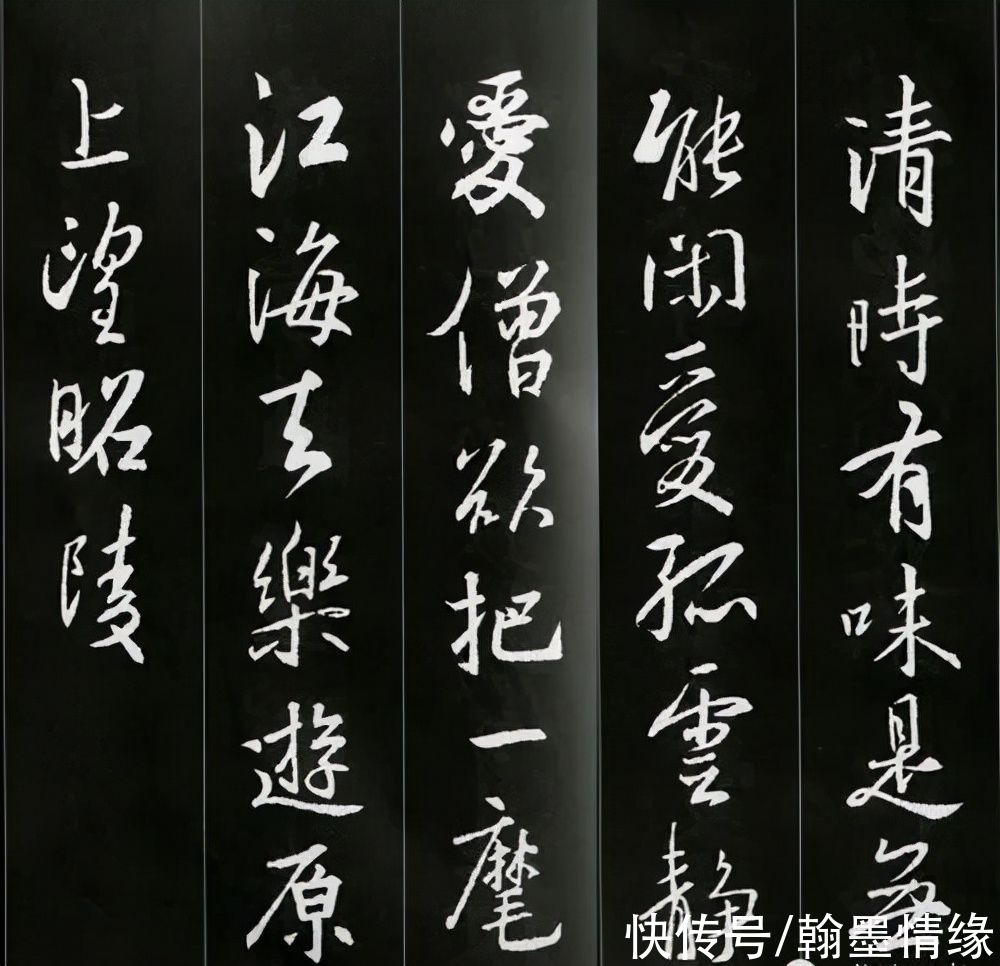 清時有味是無
能閑愛孤雲靜
愛僧欲把一麾
江海去樂遊原
上望昭陵
快传号/翰墨情缘